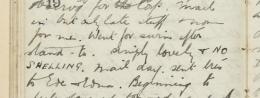 for the Cap. mail
in but only late stuff & none
for me. Went for swim after
stand to. Simply lovely & NO
SHELLING. Mail day. sent
to Eve & Edna. Beginning to